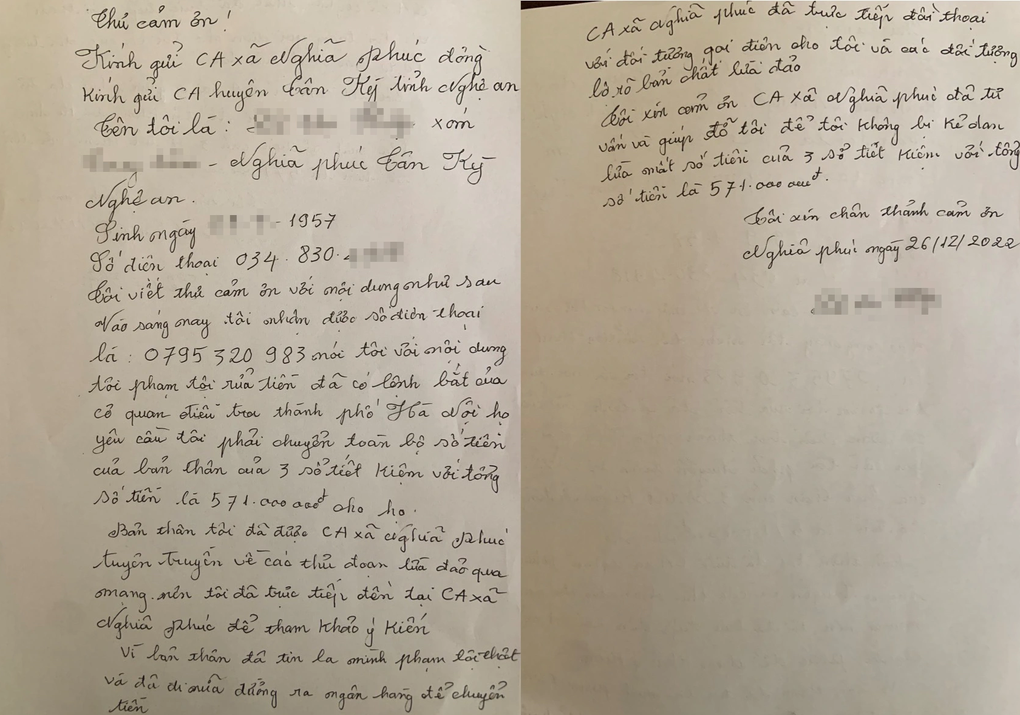 Thư cảm ơn!
Kính gửi CA xã Nghĩa phúc đồng
kính gửi CA huyện Tân Kỳ tỉnh Nghệ an
Tên tôi là: xóm
- Nghĩa phúc Tân Kỳ
Nghệ an.
Sinh ngày - 1957
Số điện thoại 034.830.
Tôi viết thư cảm ơn với nội dung như sau
Vào sáng nay tôi nhận được số điện thoại
là: 0795 320 983 nói tôi với nội dung
tôi phạm tội rửa tiền đã có lệnh bắt của
cơ quan điều tra thành phố Hà Nội họ
yêu cầu tôi phải chuyển toàn bộ số tiền
của bản thân của 3 sổ tiết kiệm với tổng
số tiền là 571.000 000đ cho họ.
Bản thân tôi đã được CA xã Nghĩa Phúc
tuyên truyền về các thủ đoạn lừa đảo qua
mạng. nên tôi đã trực tiếp đến tại CA xã
Nghĩa Phúc để tham khảo ý kiến
Vì bản thân đã tin là mình phạm tội thật
và đã đi nữa đường ra ngân hàng để chuyển
tiền
CA xã Nghĩa phúc đã trực tiếp đối thoại
với đối tượng gọi điện cho tôi và các đối tượng
lộ rõ bản chất lừa đảo
Tôi xin cảm ơn CA xã Nghĩa phúc đã tư
vấn và giúp đỡ tôi để tôi không bị kẻ gian
lừa mất số tiền của 3 sổ tiết kiệm với tổng
số tiền là 571.000 000đ
Tôi xin chân thành cảm ơn
Nghĩa phúc ngày 26/12/2022